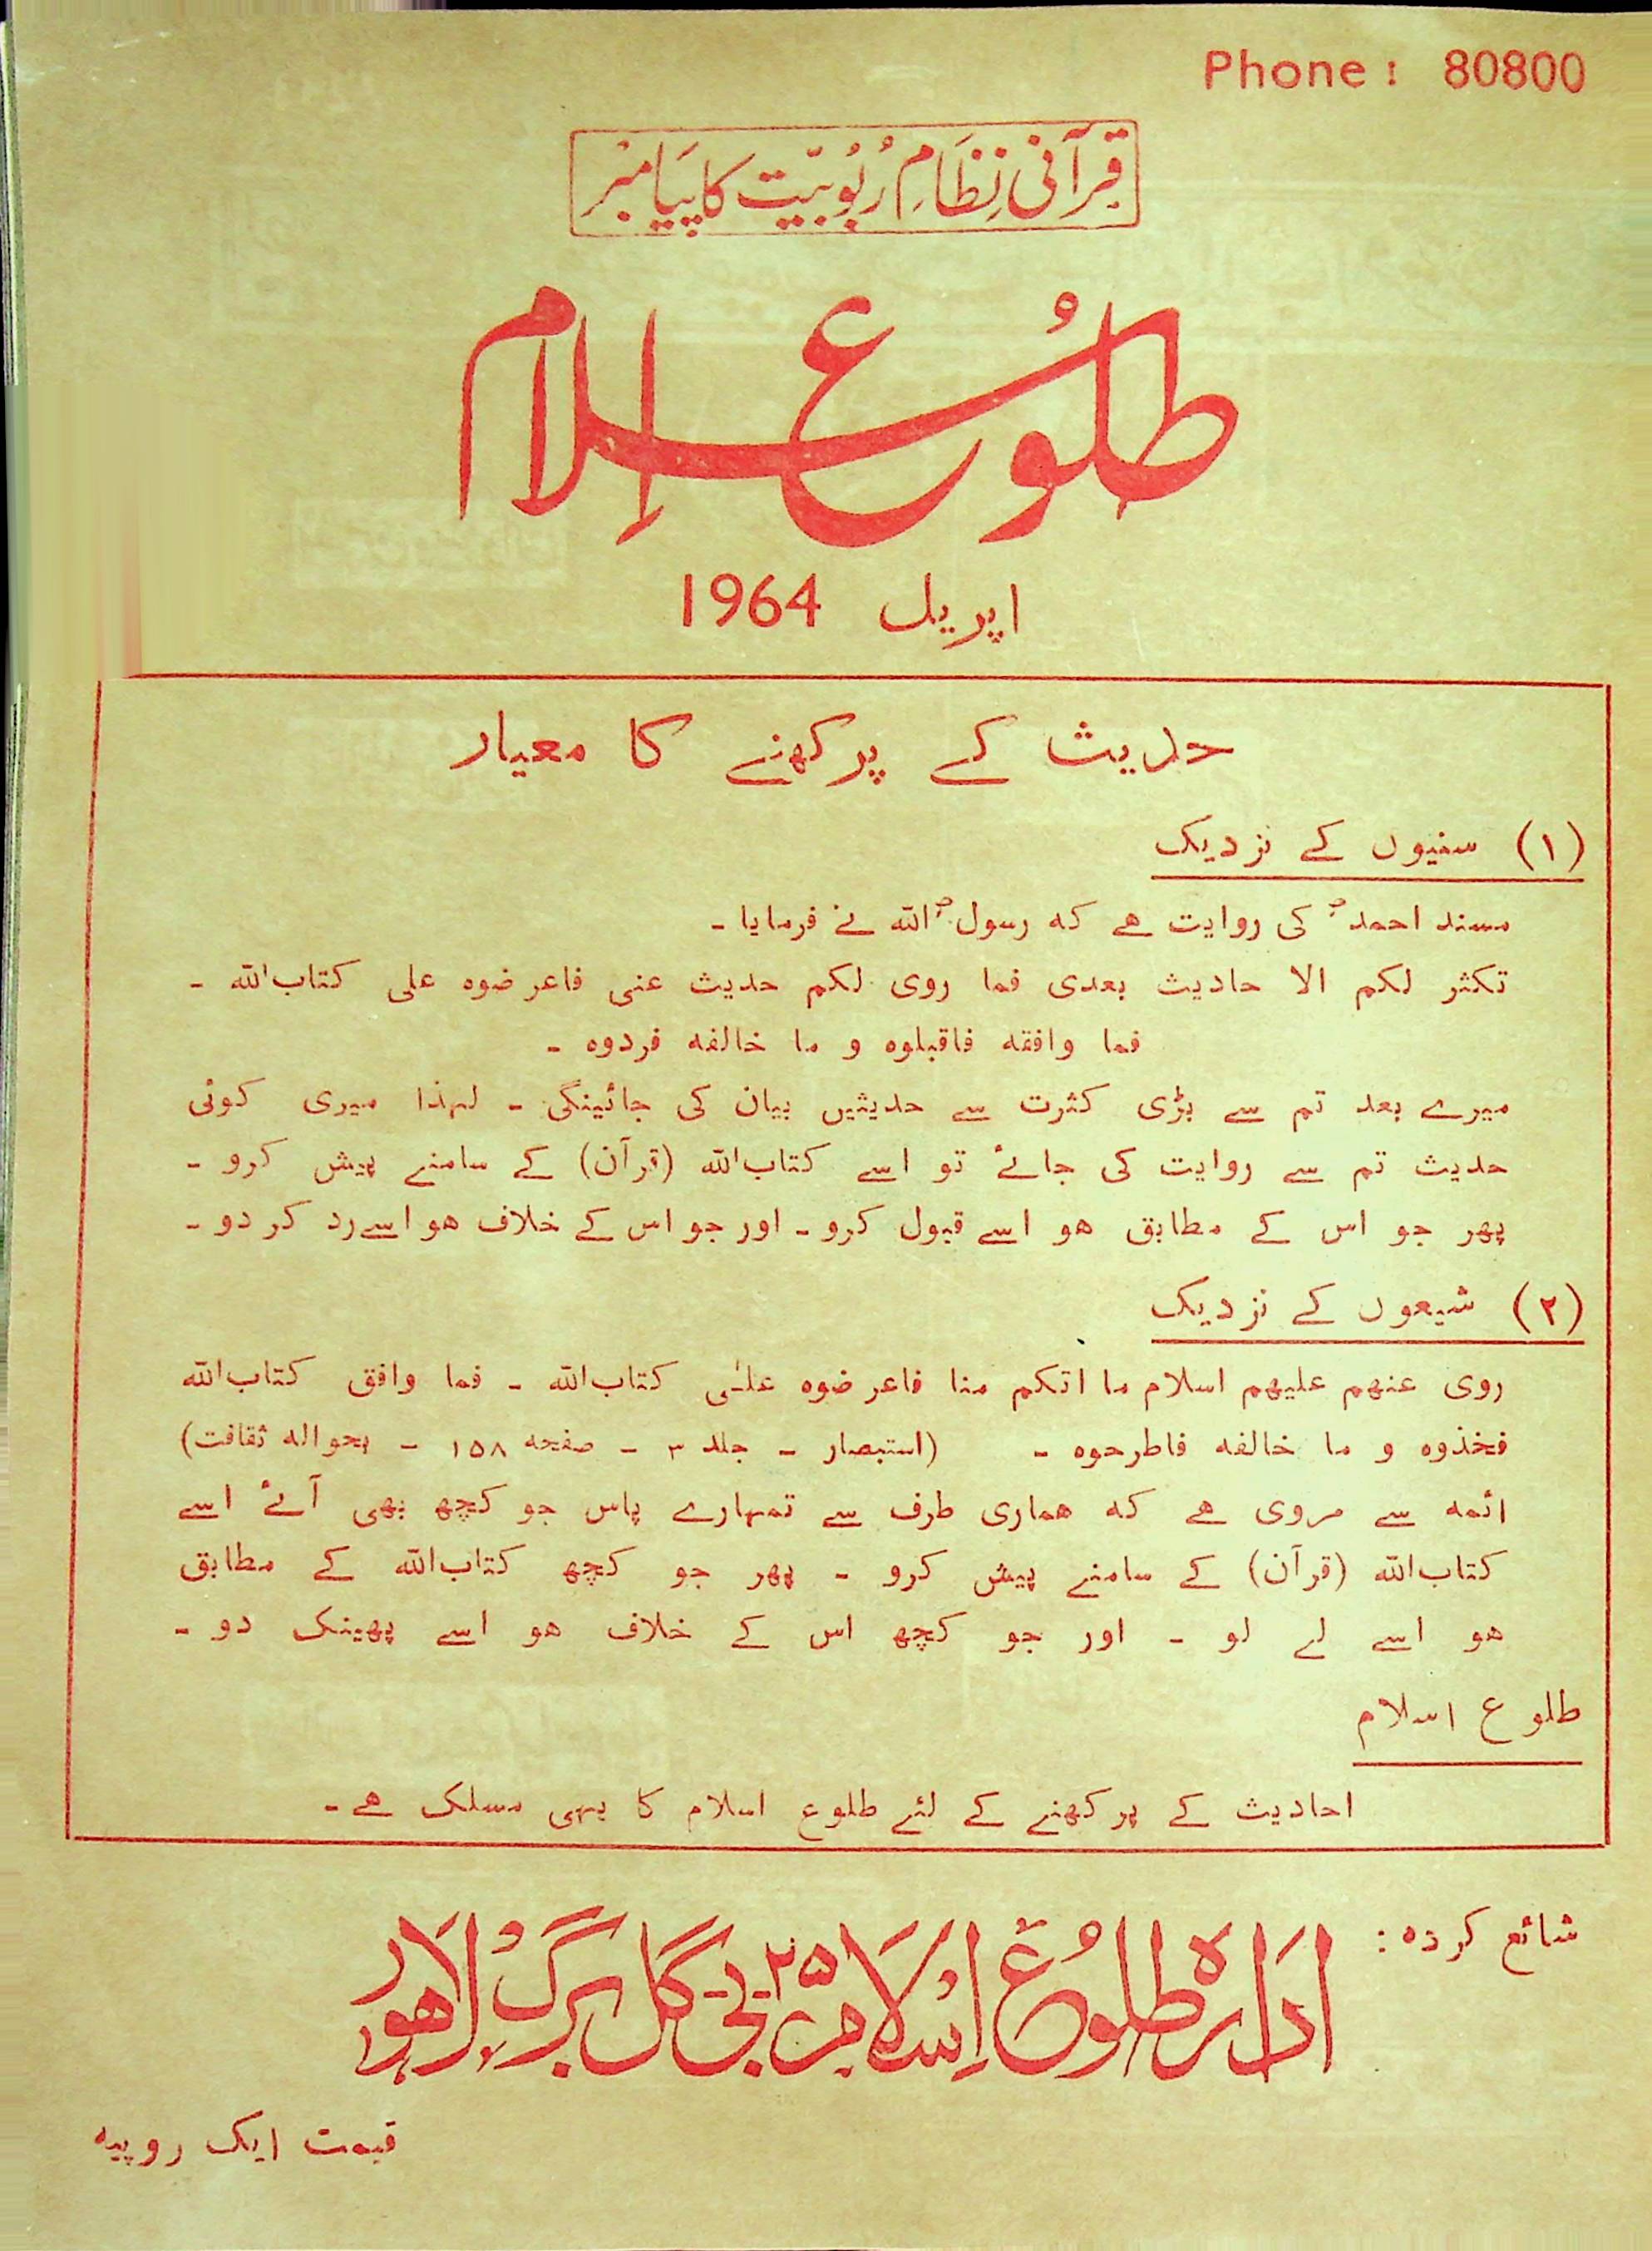 Phone : 80800
قرآنی نظام ربوبیت کا پیامبر
طلوع اسلام
اپریل 1964
حدیث کے پرکھنے کا معیار
(۱) سنیوں کے نزدیک
مسند احمدؒ کی روایت ہے کہ رسولؐ اللہ نے فرمایا ۔
تکثر لکم الا حادیث بعدی فما روی لکم حدیث عنی فاعرضوہ علی کتاب اللہ ۔
فما وافقہ فاقبلوہ و ما خالفہ فردوہ ۔
میرے بعد تم سے بڑی کثرت سے حدیثیں بیان کی جائینگی ۔ لہذا میری کوئی
حدیث تم سے روایت کی جائے تو اسے کتاب اللہ (قرآن) کے سامنے پیش کرو ۔
پھر جو اس کے مطابق ہو اسے قبول کرو ۔ اور جو اس کے خلاف ہو اسے رد کر دو ۔
(۲) شیعوں کے نزدیک
روی عنہم علیہم اسلام ما اتکم منا فاعرضوہ علیٰ کتاب اللہ ۔ فما وافق کتاب اللہ
فخذوہ و ما خالفہ فاطرحوہ ۔ (استبصار ۔ جلد ۳ ۔ صفحہ ۱۵۸ ۔ بحوالہ ثقافت)
ائمہ سے مروی ہے کہ ہماری طرف سے تمہارے پاس جو کچھ بھی آئے اسے
کتاب اللہ (قرآن) کے سامنے پیش کرو ۔ پھر جو کچھ کتاب اللہ کے مطابق
ہو اسے لے لو ۔ اور جو کچھ اس کے خلاف ہو اسے پھینک دو ۔
طلوع اسلام
احادیث کے پرکھنے کے لئے طلوع اسلام کا یہی مسلک ہے ۔
شائع کردہ :
ادارہ طلوع اسلام ۲۵ بی گل برگ لاہور
قیمت ایک روپیہ